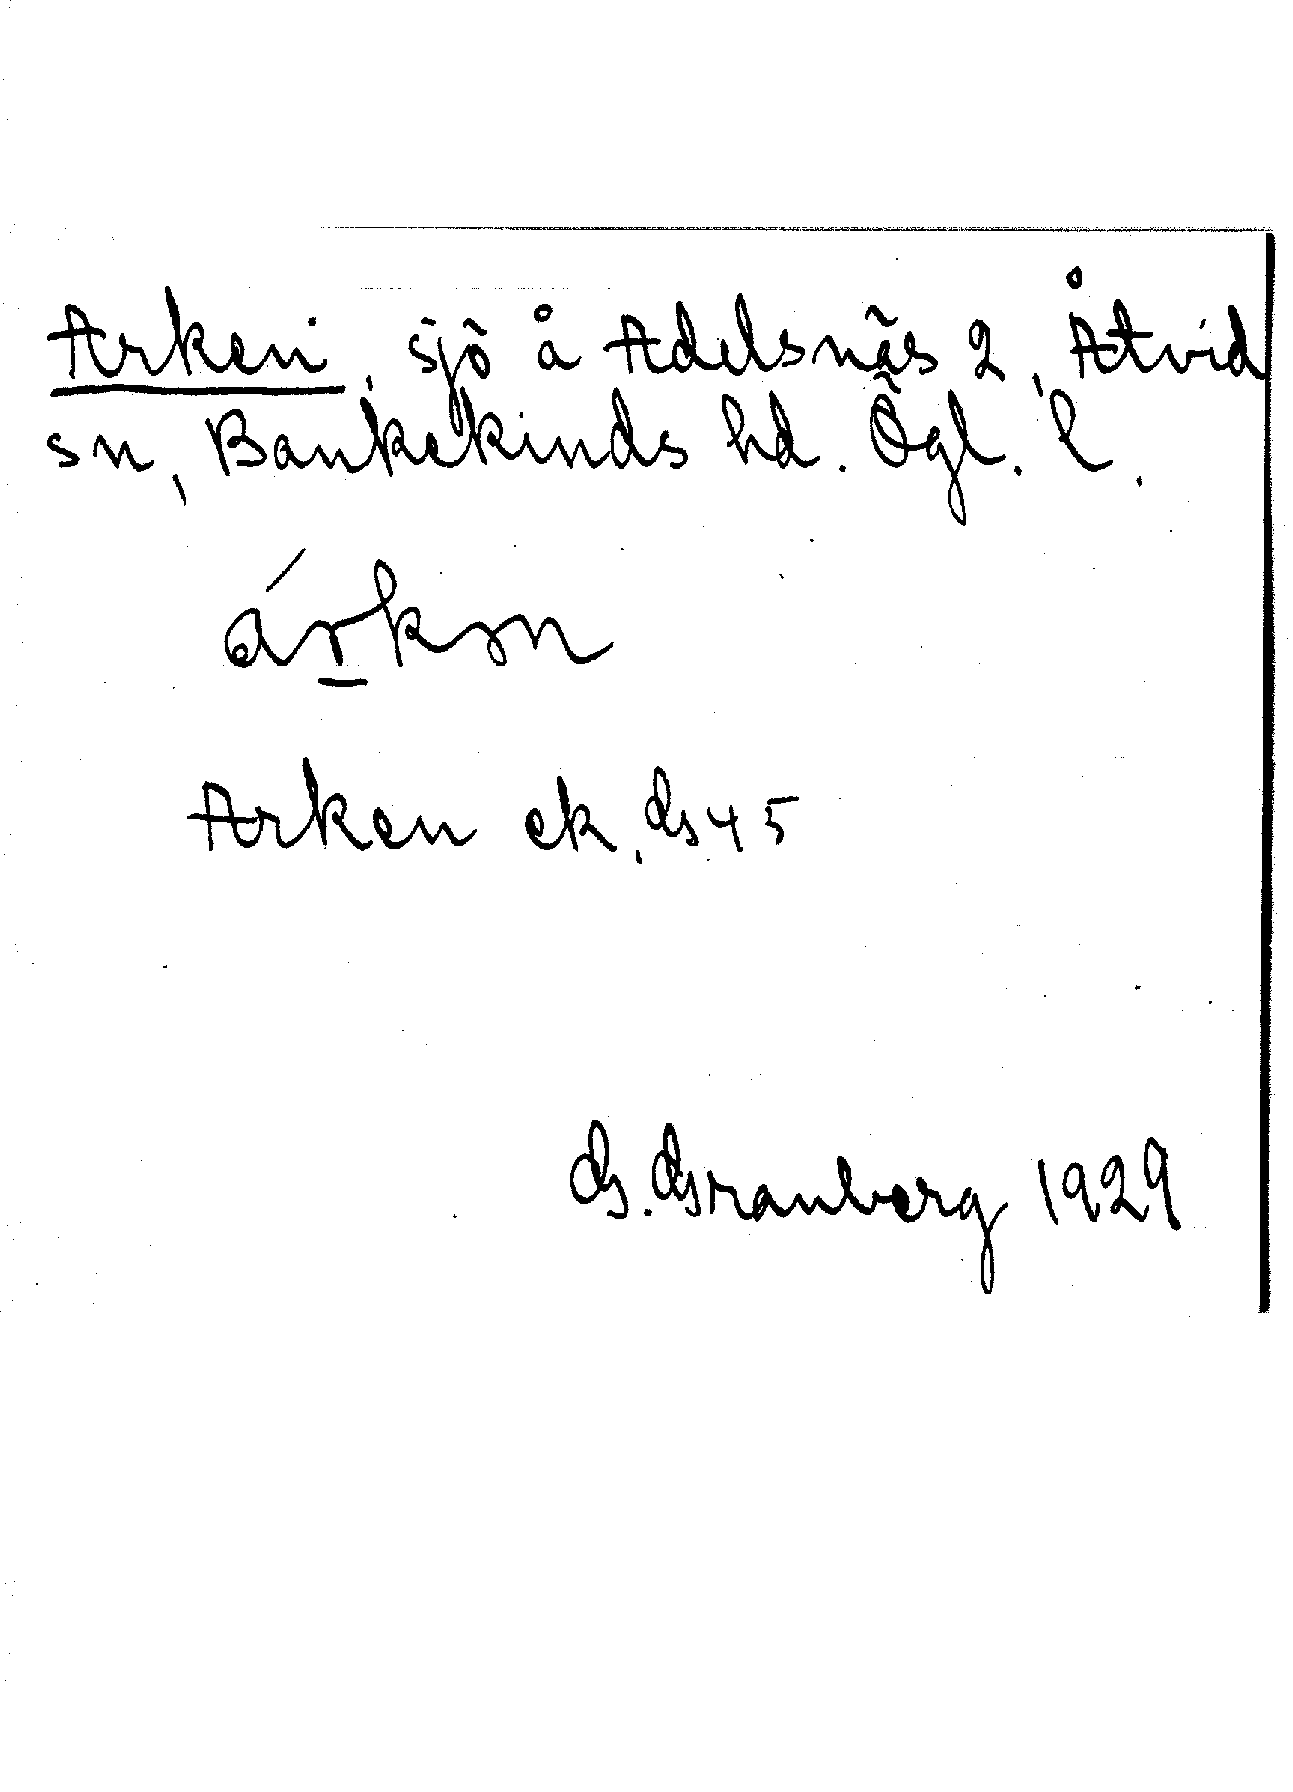 Arken, sjö å Adelsnäs 2, Åtvid
sn, Bankekinds hd. Ögl. l.
árkən
Arken ek, G45
G. Granberg 1929